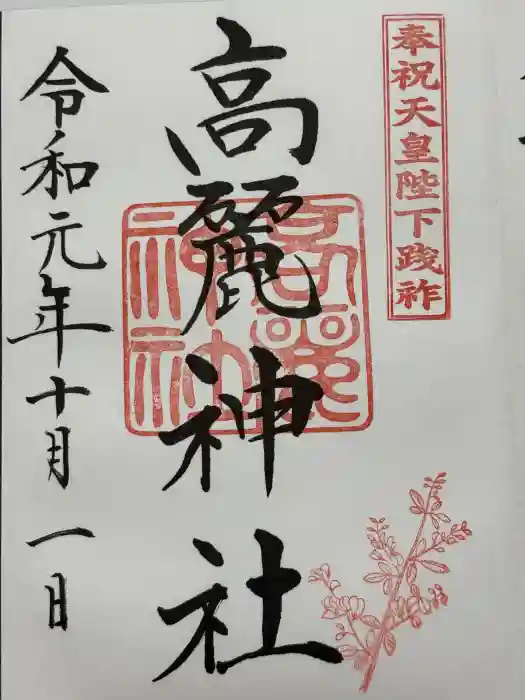 奉祝天皇陛下践祚
高麗神社
令和元年十月一日